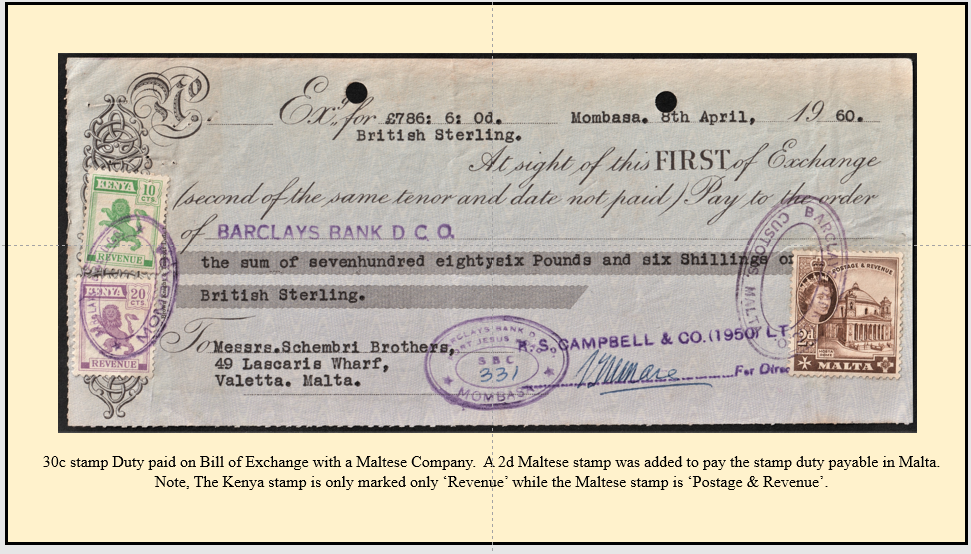 No.
Exd. for £786: 6: 0d. Mombasa. 8th April, 1960.
British Sterling.
At sight of this FIRST of Exchange
(second of the same tenor and date not paid) Pay to the order
of BARCLAYS BANK D C O.
the sum of sevenhundred eightysix Pounds and six Shillings
British Sterling.
To Messrs.Schembri Brothers,
49 Lascaris Wharf,
Valetta. Malta.
KENYA 10 CTS.
REVENUE
KENYA 20 CTS.
REVENUE
BARCLAYS BANK D.C.O.
S B C
331
MOMBASA
R. S. CAMPBELL & CO. (1950) LT
For Direc
BARCLAYS
CUSTOMS MALTA
POSTAGE & REVENUE
2d
MALTA
30c stamp Duty paid on Bill of Exchange with a Maltese Company. A 2d Maltese stamp was added to pay the stamp duty payable in Malta.
Note, The Kenya stamp is only marked only ‘Revenue’ while the Maltese stamp is ‘Postage & Revenue’.